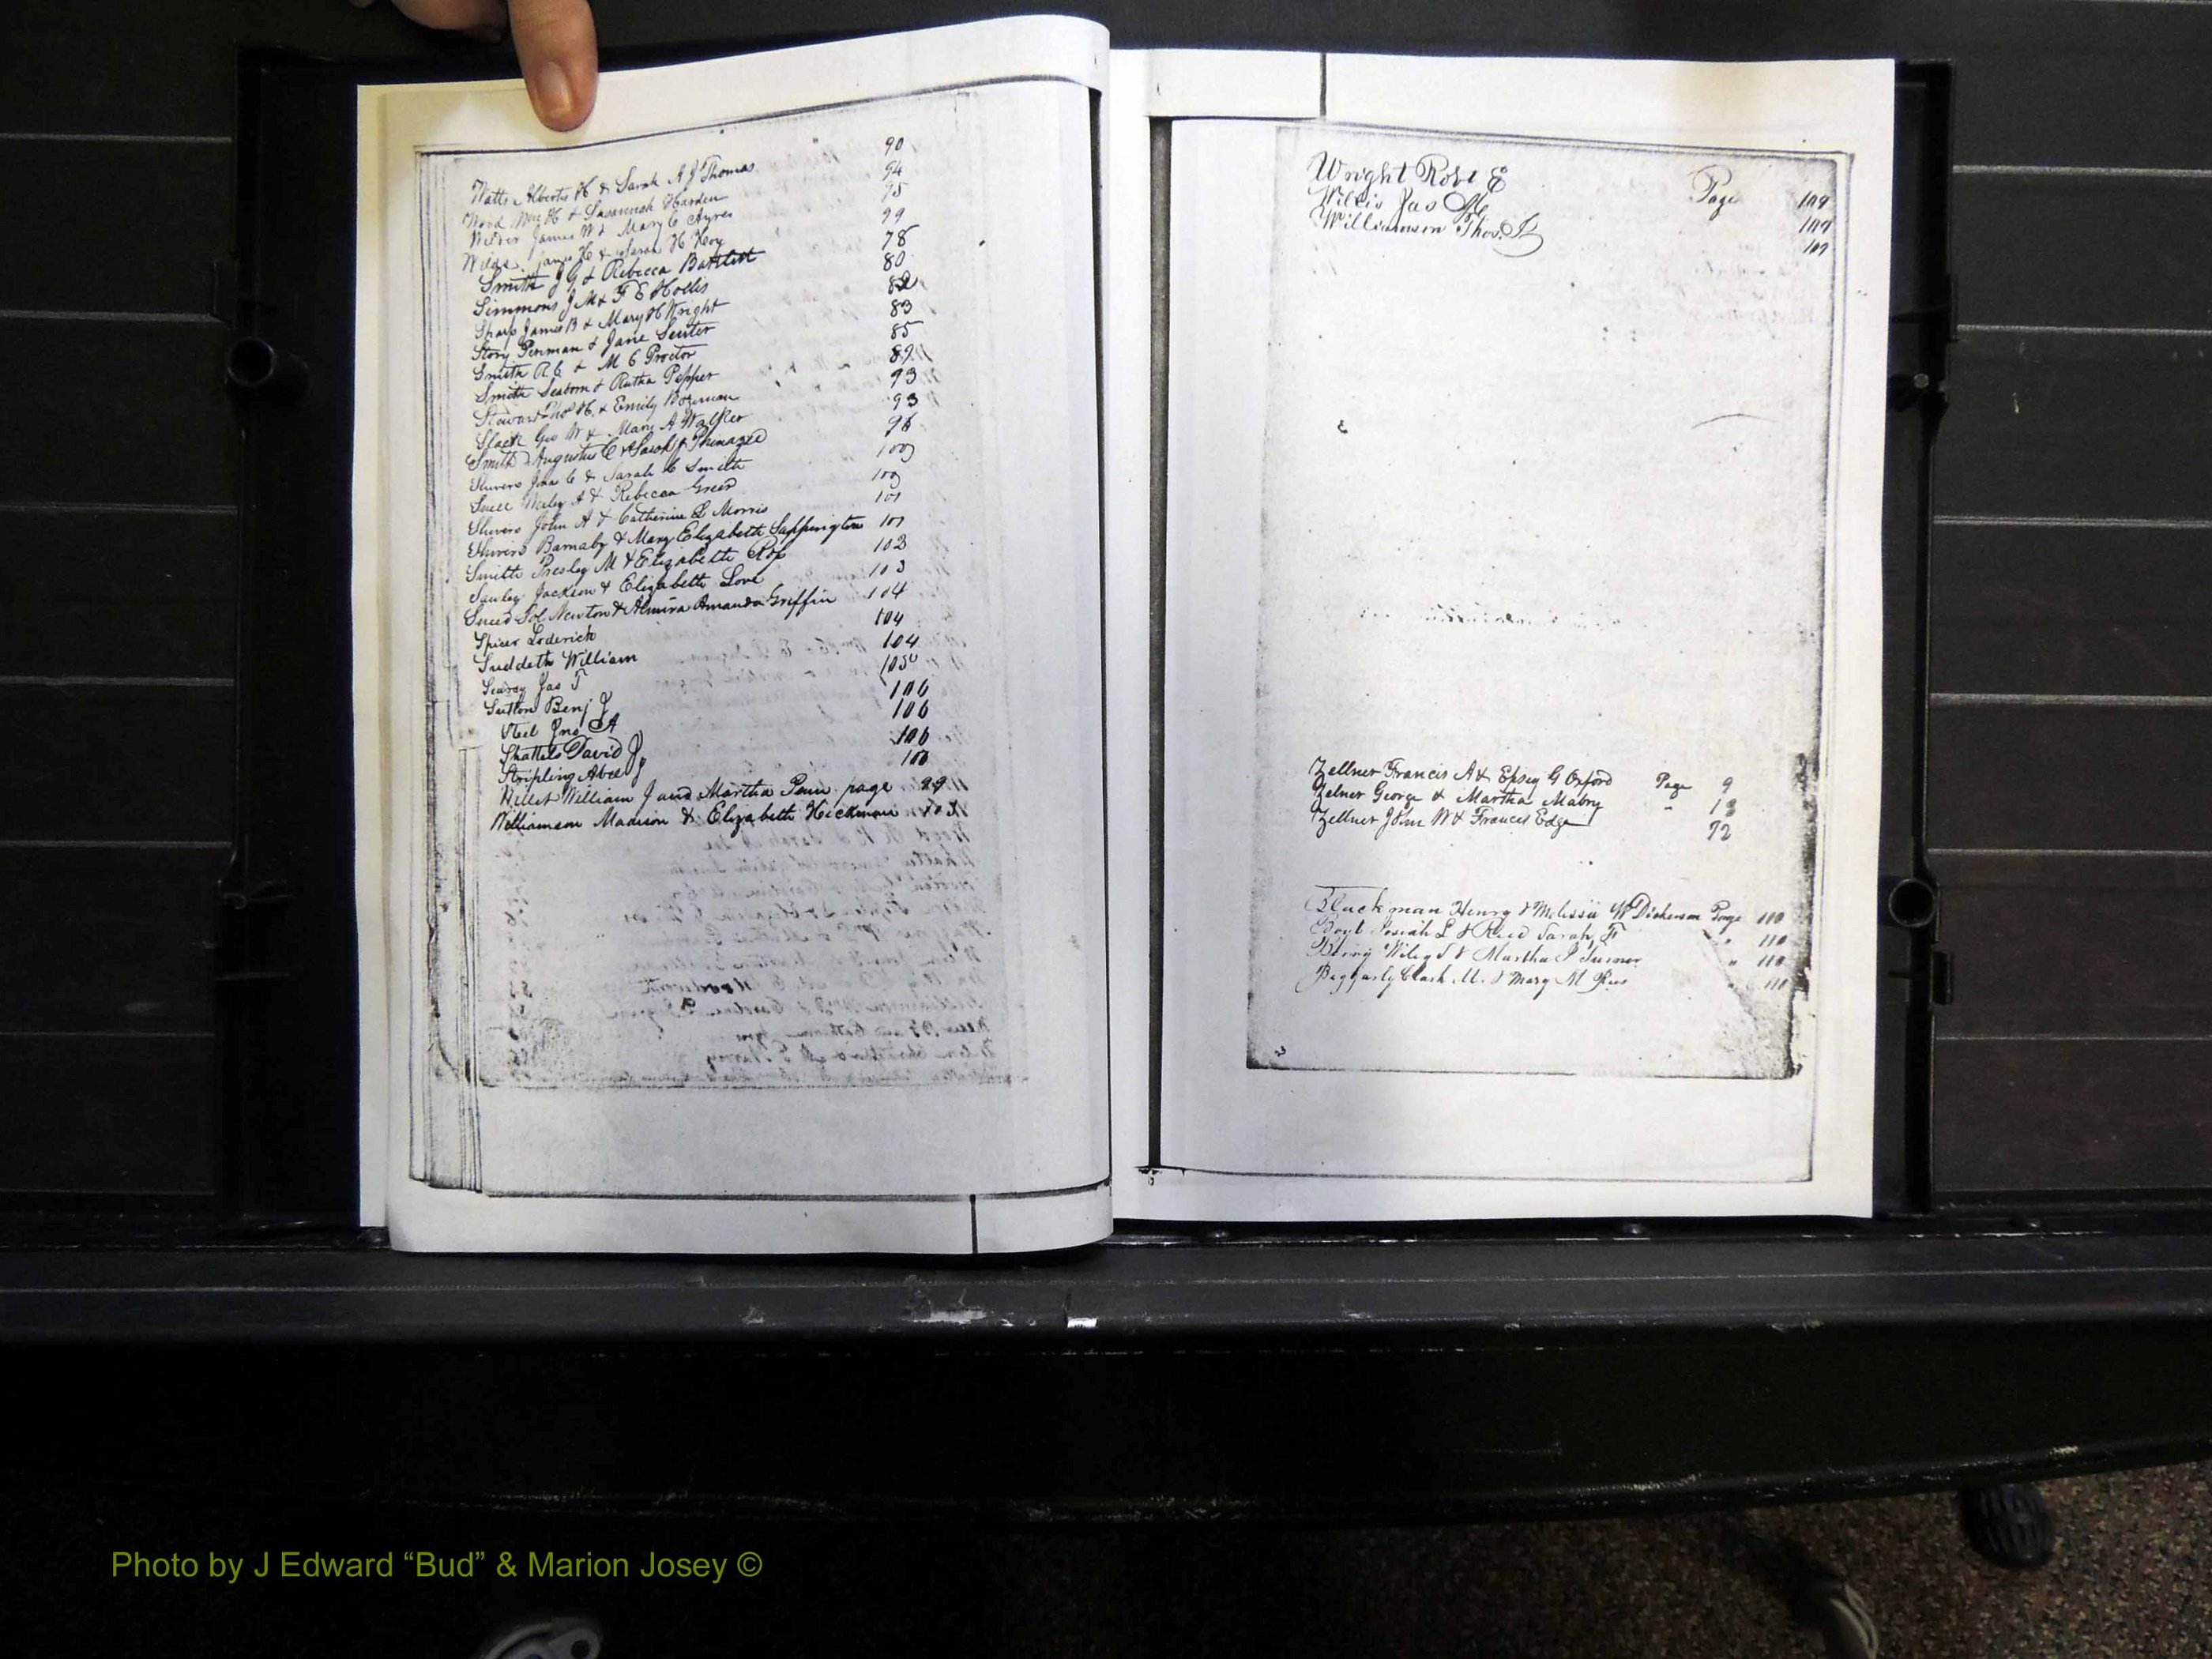 Watts Albertis H & Sarah A J Thomas 90
Wood Wm H & Susannah Harden 94
Wilder James W & Mary C Ayres 95
James H & Sarah H Hoy 99
Smith J G & Rebecca Bartlett 78
Simmons J M & F E Hollis 80
Sharp James B & Mary H Wright 82
Story Penman & Jane Senter 83
Smith R C & M C Proctor 85
Smith Seaborn & Rutha Pepper 89
Steward Thos H. & Emily Bozeman 93
Slack Geo W & Mary A Walker 93
Smith Augustus C & Sarah J 96
Shivers Jno C & Sarah C Smith 100
Wiley A & Rebecca Greer 100
Shivers John A & Catherine L Morris 101
Shivers Barnaby & Mary Elizabeth Sappington 101
Smith Presley M & Elizabeth 102
Jackson & Elizabeth Love 103
Sneed Sol Newton & Almira Amanda Griffin 104
Spicer Loderick 104
Suddeth William 104
Searcy Jas T 105
Sutton Benj J 106
Steel Jno A 106
David J 106
Stripling Abel J 106
William J and Martha Penn page 99
Williamson Madison & Elizabeth Hickman
Wright Robt E Page 109
Willis Jas M 109
Williamson Thos. B 109
Zellner Francis A & Epsey G Oxford Page 9
Zelner George & Martha Mabry " 13
Zellner John W & Frances Edge 72
Blackman Henry & Melissa W Dickerson Page 110
Josiah L & Reed Sarah F " 110
Berry Wiley J & Martha J Turner " 110
Beggarly Clark M. & Mary M " 110
Photo by J Edward “Bud” & Marion Josey ©